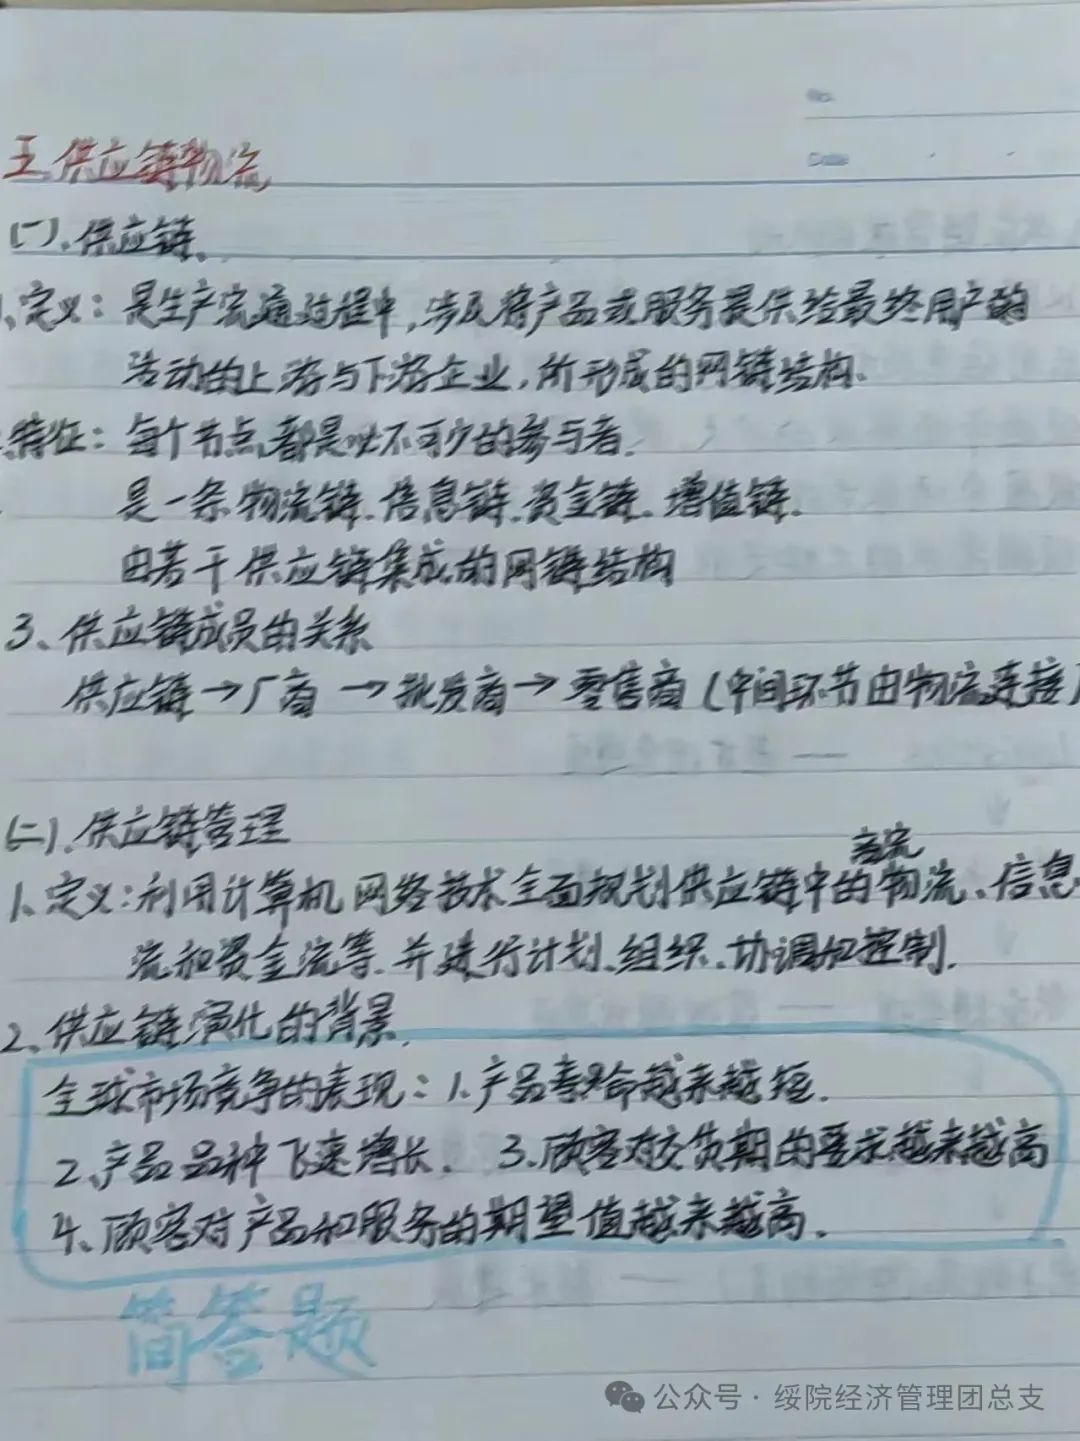 No.
Date
五、供应链物流
(一)、供应链、
1、定义：是生产流通过程中，涉及将产品或服务提供给最终用户的
活动的上游与下游企业，所形成的网链结构、
特征：每个节点都是必不可少的参与者.
是一条物流链、信息链、资金链、增值链.
由若干供应链集成的网链结构
3、供应链成员的关系
供应链→厂商→批发商→零售商(中间环节由物流连接)
(二)、供应链管理
商流
1、定义：利用计算机网络技术全面规划供应链中的物流、信息
流和资金流等、并进行计划、组织、协调和控制.
2、供应链演化的背景.
全球市场竞争的表现：1.产品寿命越来越短.
2、产品品种飞速增长. 3.顾客对交货期的要求越来越高
4、顾客对产品和服务的期望值越来越高.
简答题
公众号·绥院经济管理团总支